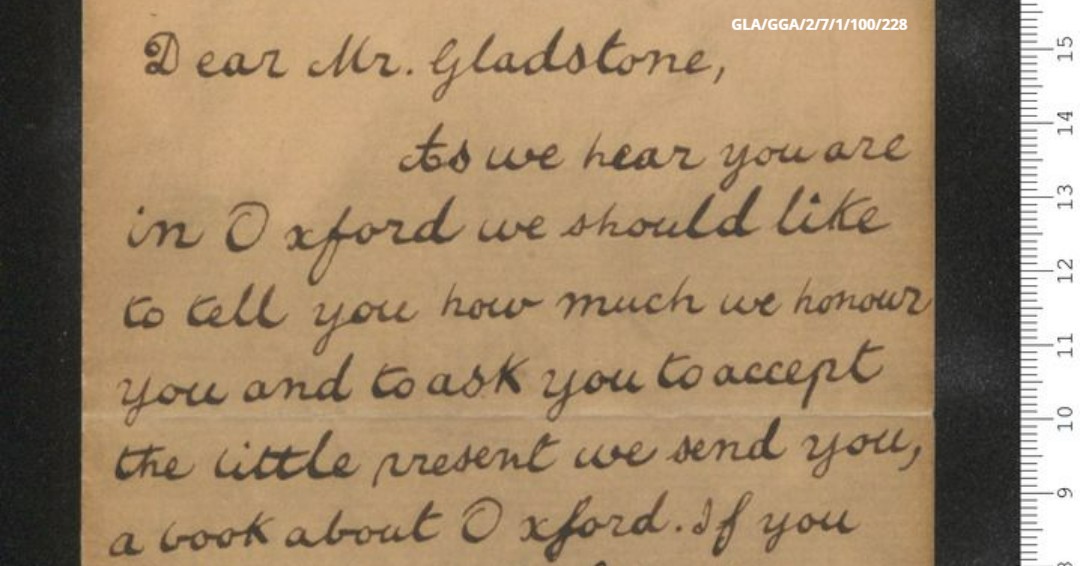 GLA/GGA/2/7/1/100/228
Dear Mr. Gladstone,
As we hear you are
in Oxford we should like
to tell you how much we honour
you and to ask you to accept
the little present we send you,
a book about Oxford. If you
15
14
13
12
11
10
9